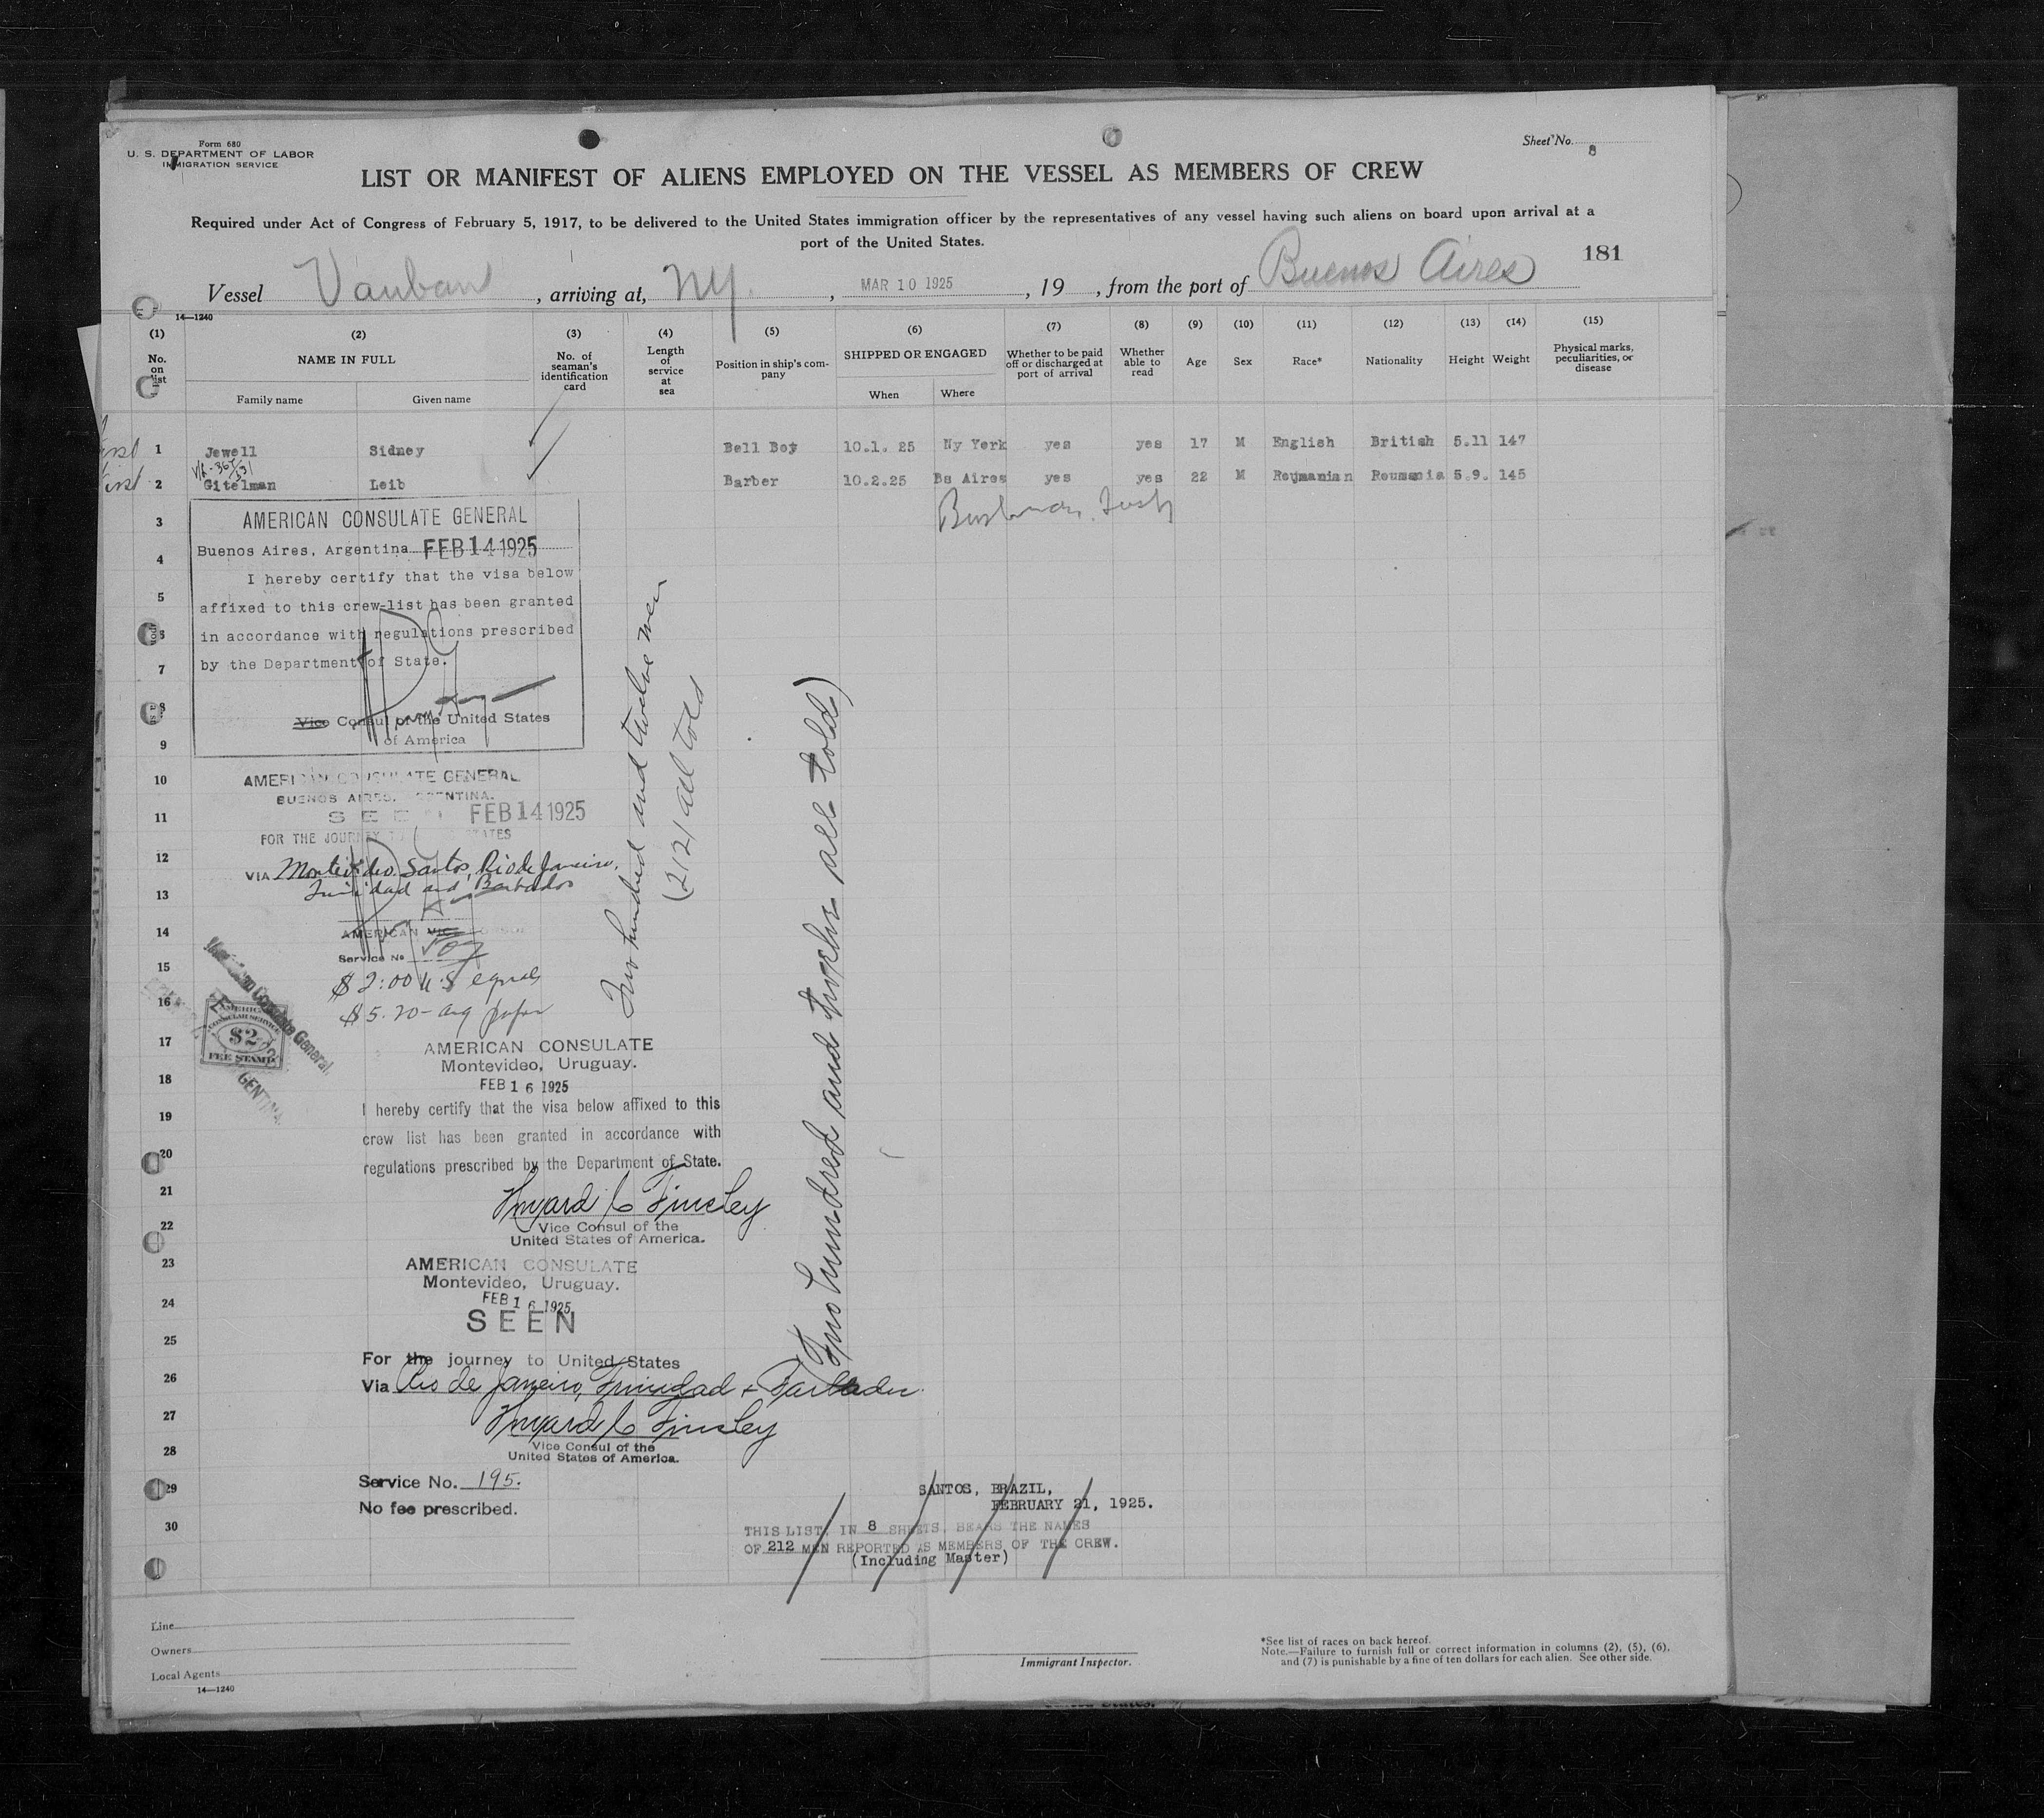 Form 680
U. S. DEPARTMENT OF LABOR
IMMIGRATION SERVICE
Sheet No. 8
LIST OR MANIFEST OF ALIENS EMPLOYED ON THE VESSEL AS MEMBERS OF CREW
Required under Act of Congress of February 5, 1917, to be delivered to the United States immigration officer by the representatives of any vessel having such aliens on board upon arrival at a
port of the United States.
181
Vessel Vauban, arriving at, NY., MAR 10 1925, 19 , from the port of Buenos Aires
14—1240
(1) (2) (3) (4) (5) (6) (7) (8) (9) (10) (11) (12) (13) (14) (15)
No. on list
NAME IN FULL
Family name
Given name
No. of seaman's identification card
Length of service at sea
Position in ship's company
SHIPPED OR ENGAGED
When
Where
Whether to be paid off or discharged at port of arrival
Whether able to read
Age
Sex
Race*
Nationality
Height
Weight
Physical marks, peculiarities, or disease
1 Jewell Sidney Bell Boy 10.1. 25 Ny Yerk yes yes 17 M English British 5.11 147
2 Gitelman Leib Barber 10.2.25 Bs Aires yes yes 22 M Reumanian Roumania 5.9. 145
3
4
5
6
7
8
9
10
11
12
13
14
15
16
17
18
19
20
21
22
23
24
25
26
27
28
29
30
AMERICAN CONSULATE GENERAL
Buenos Aires, Argentina FEB 14 1925
I hereby certify that the visa below
affixed to this crew-list has been granted
in accordance with regulations prescribed
by the Department of State.
Vice Consul of the United States
of America
AMERICAN CONSULATE GENERAL
BUENOS AIRES, ARGENTINA.
SEEN FEB 14 1925
FOR THE JOURNEY TO STATES
VIA Montevideo, Santos, Rio de Janeiro,
Trinidad and Barbados
AMERICAN VICE CONSUL
Service No
$2.00 U.S equals
$5.20 - arg paper
American Consulate General
AMERICAN
CONSULAR SERVICE
$2
FEE STAMP
Two hundred and twelve men
(212) all told
Two hundred and twelve all told)
AMERICAN CONSULATE
Montevideo, Uruguay.
FEB 16 1925
I hereby certify that the visa below affixed to this
crew list has been granted in accordance with
regulations prescribed by the Department of State.
Vice Consul of the
United States of America.
AMERICAN CONSULATE
Montevideo, Uruguay.
FEB 16 1925
SEEN
For the journey to United States
Via Rio de Janeiro, Trinidad + Barbados.
Vice Consul of the
United States of America.
Service No. 195.
No fee prescribed.
SANTOS, BRAZIL,
FEBRUARY 21, 1925.
THIS LIST, IN 8 SHEETS, BEARS THE NAMES
OF 212 MEN REPORTED AS MEMBERS OF THE CREW.
(Including Master)
Line
Owners
Local Agents
14—1240
Immigrant Inspector.
*See list of races on back hereof.
Note.—Failure to furnish full or correct information in columns (2), (5), (6),
and (7) is punishable by a fine of ten dollars for each alien. See other side.